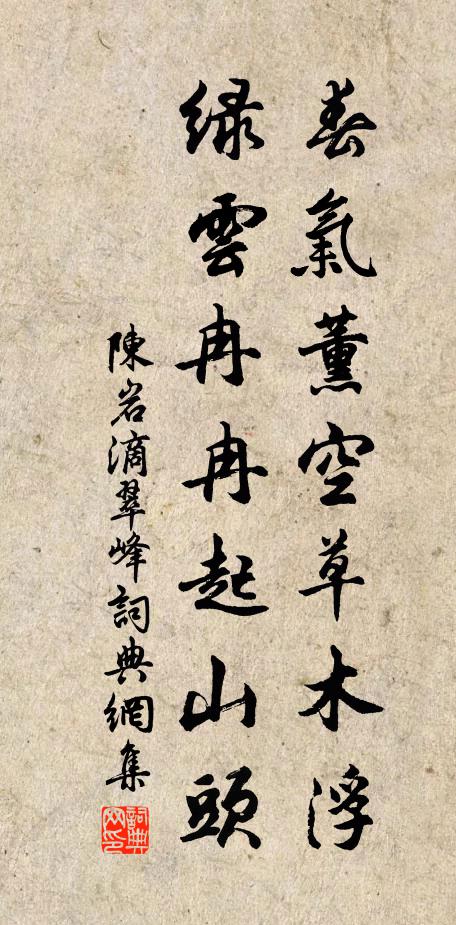 春氣薰空草木浮
緑雲冉冉起山頭
陳岩滴翠峰詞典網集
詞典
网印